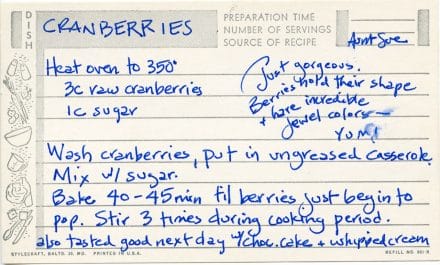 DISH
CRANBERRIES
PREPARATION TIME
NUMBER OF SERVINGS
SOURCE OF RECIPE
Aunt Sue
Heat oven to 350°
3c raw cranberries
1c sugar
Just gorgeous.
Berries hold their shape
+ have incredible
jewel colors—
YUM!
Wash cranberries, put in ungreased casserole.
Mix w/ sugar.
Bake 40-45min til berries just begin to
pop. Stir 3 times during cooking period.
also tasted good next day w/choc. cake + whipped cream
STYLECRAFT, BALTO. 30, MD. PRINTED IN U.S.A.